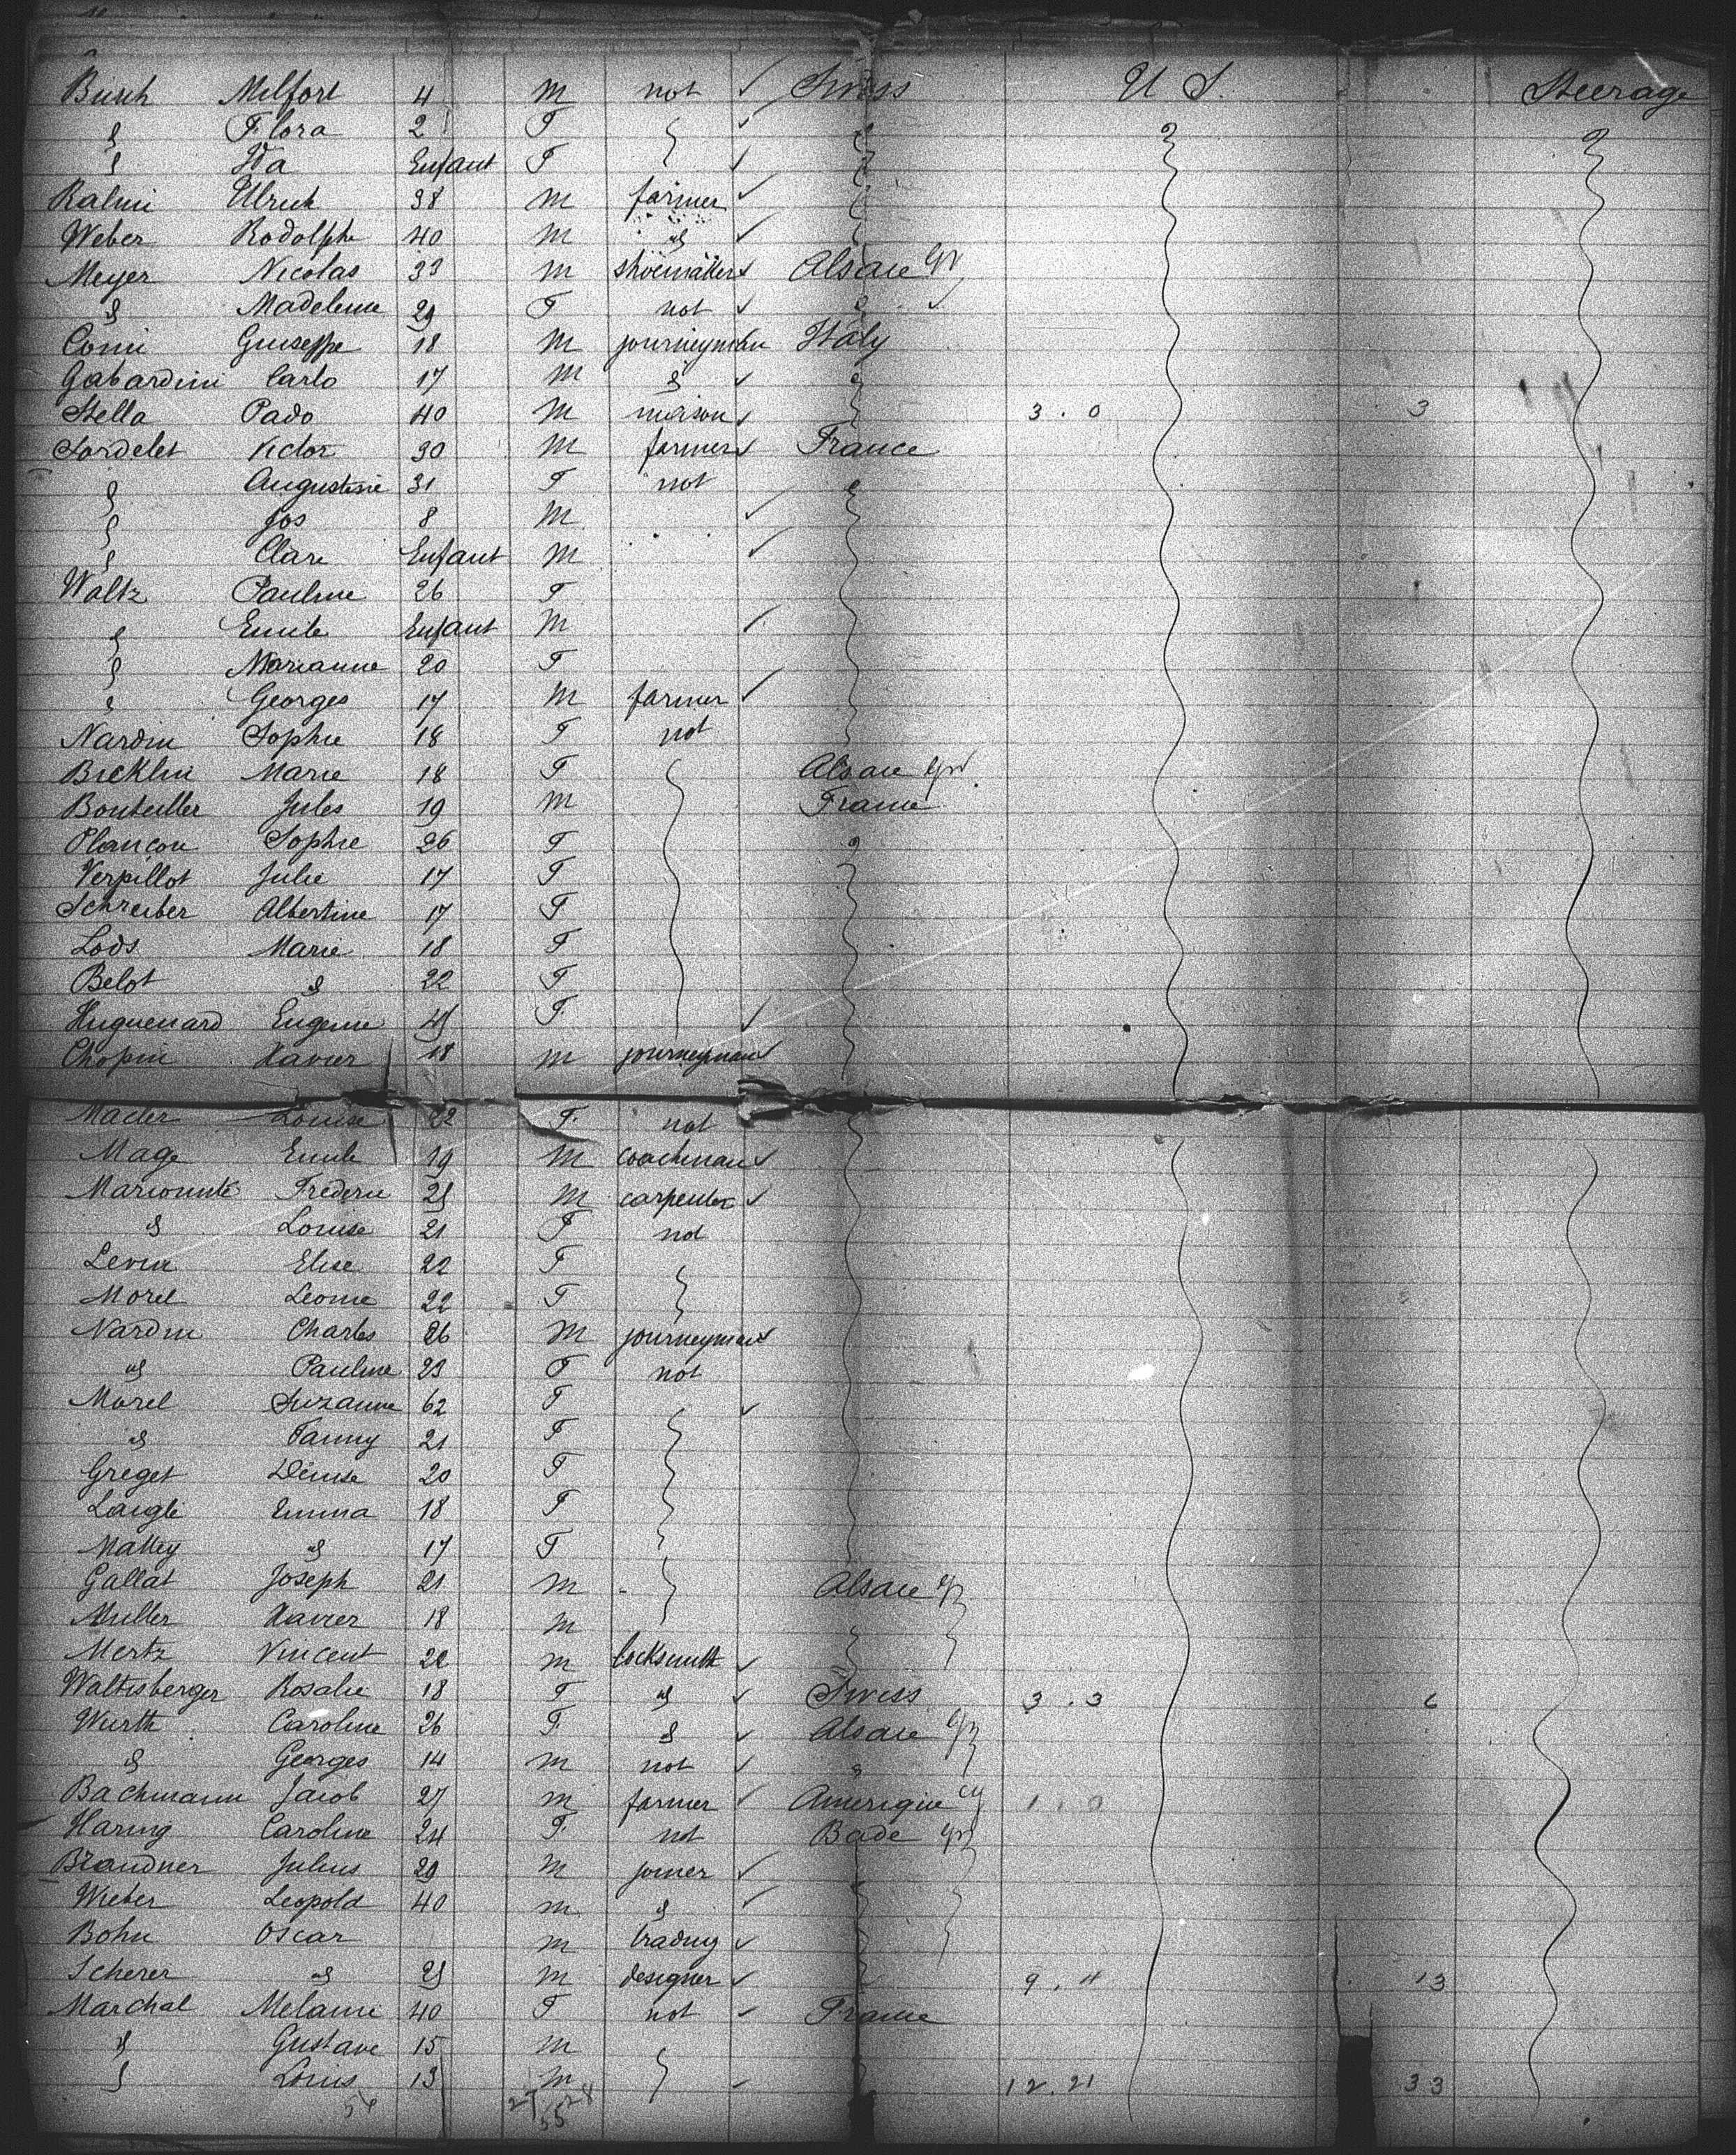 Busch Milfort 4 M not ✓ Swiss U S. Steerage
" Flora 2 F ✓
" Ida Enfant F ✓
Ralmi Ulrich 38 M farmer ✓
Weber Rodolphe 40 M " ✓
Meyer Nicolas 33 M shoemaker ✓ Alsace
" Madeleine 29 F not ✓ " ✓
Comi Guiseppe 18 M journeyman Italy
Gabardini Carlo 17 M " ✓
Stella Pado 40 M maison ✓ 3 . 0 3
Sordelet Victor 30 M farmer ✓ France
" Augustine 31 F not
" Jos 8 M ✓
" Clare Enfant M ✓
Waltz Pauline 26 F
" Emile Enfant M ✓
" Marianne 20 F
" Georges 17 M farmer ✓
Nardin Sophie 18 F not
Bicklin Marie 18 F Alsace
Bouteiller Jules 19 M France
Plançon Sophie 26 F
Verpillot Julie 17 F
Schreiber Albertine 17 F
Lods Marie 18 F
Belot " 22 F
Huguenard Eugenie F ✓
Chopin Xavier 18 M journeyman ✓
Macler Louise 22 F. not
Mage Emile 19 M coachman ✓
Frederic M carpenter ✓
" Louise 21 F not
Elise 22 F
Morel Leonie 22 F
Nardin Charles 26 M journeyman ✓
" Pauline 23 F not
Morel Suzanne 62 F ✓
" Fanny 21 F
Greget Denise 20 F
Laigle Emma 18 F
Mattey " 17 F
Gallat Joseph 21 M Alsace
Muller Xavier 18 M
Mertz Vincent 22 M locksmith ✓
Waltisberger Rosalie 18 F " ✓ Swiss 3 . 3 6
Wurth Caroline 26 F " ✓ Alsace
" Georges 14 M not ✓ "
Bachmann Jacob 27 M farmer ✓ Amerique 1 . 0
Haring Caroline 24 F not Bade
Brandner Julius 29 M joiner ✓
Wieber Leopold 40 M " ✓
Bohn Oscar M trading ✓
Scherer " M designer ✓ 9 . 4 13
Marchal Melanie 40 F not ✓ France
" Gustave 15 M
" Louis 13 M 12.21 33
27 28
55